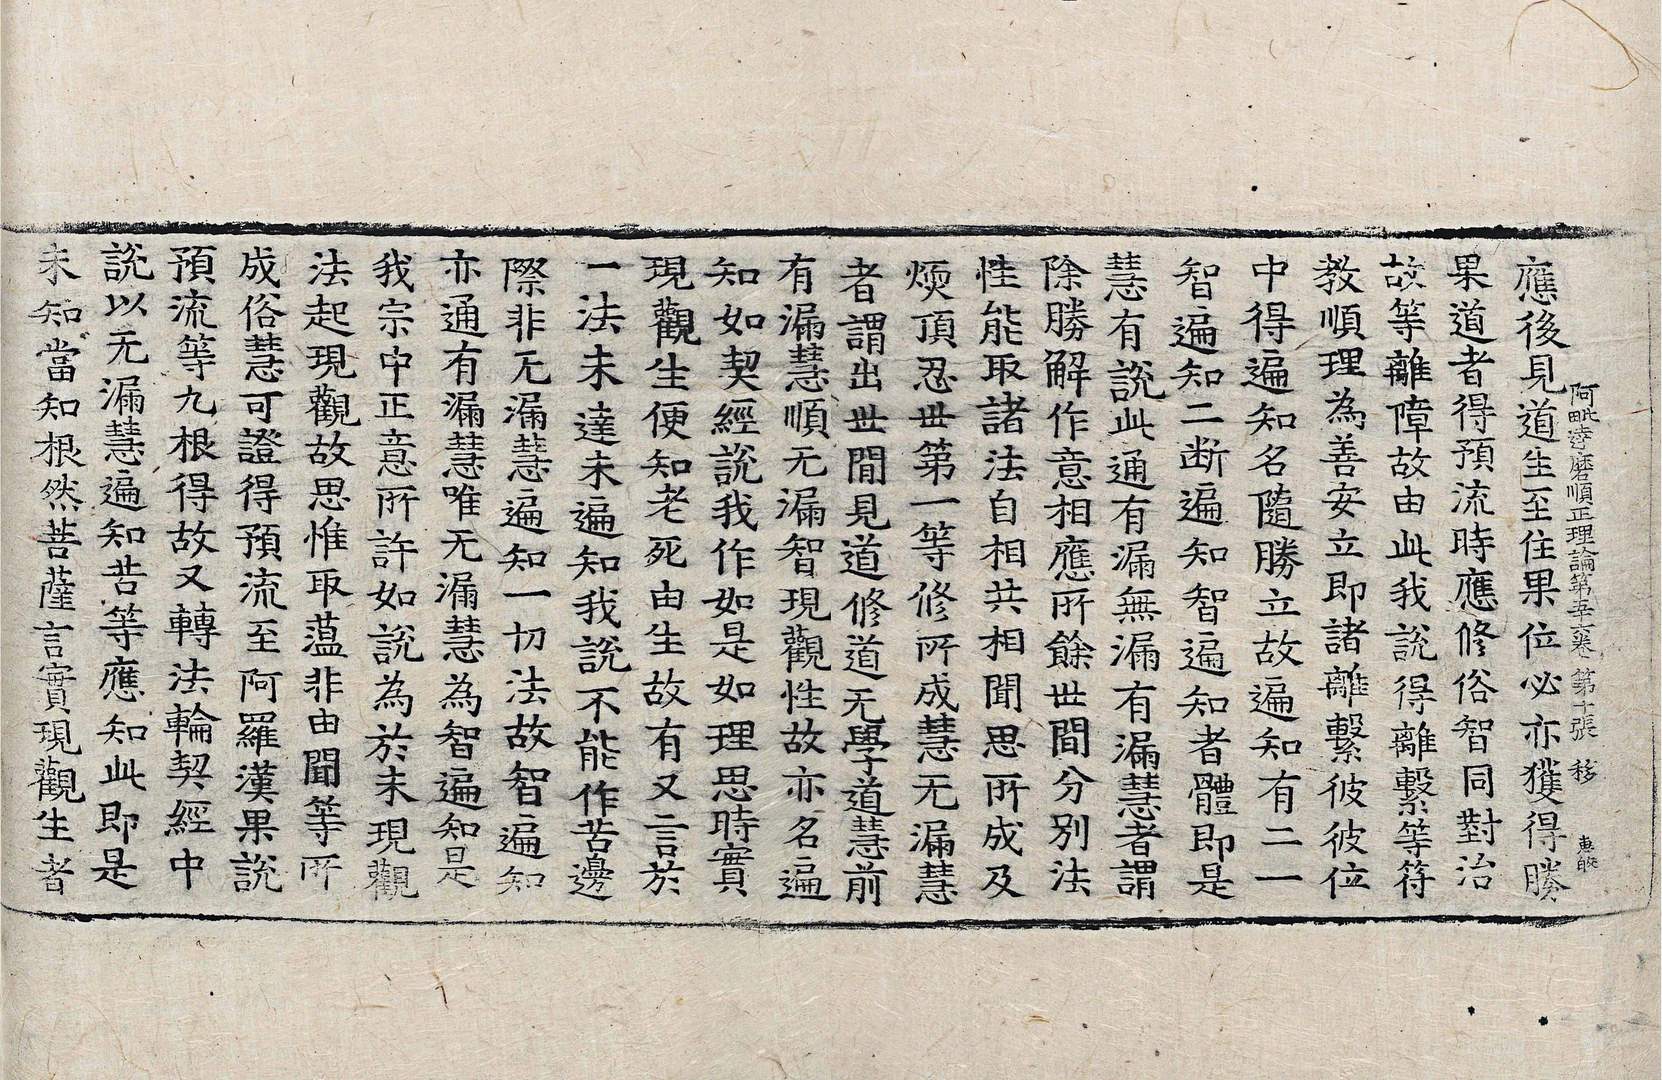 阿毗達磨順正理論第五六卷 第十張 移
應後見道生至住果位必亦獲得勝
果道者得預流時應修俗智同對治
故等離障故由此我說得離繫等符
教順理為善安立即諸離繫彼彼位
中得遍知名隨勝立故遍知有二一
智遍知二断遍知智遍知者體即是
慧有說此通有漏無漏有漏慧者謂
除勝解作意相應所餘世間分別法
性能取諸法自相共相聞思所成及
煗頂忍世第一等修所成慧无漏慧
者謂出世間見道修道无學道慧前
有漏慧順无漏智現觀性故亦名遍
知如契經說我作如是如理思時實
現觀生便知老死由生故有又言於
一法未達未遍知我說不能作苦邊
際非无漏慧遍知一切法故智遍知
亦通有漏慧唯无漏慧為智遍知是
我宗中正意所許如說為於未現觀
法起現觀故思惟取蕰非由聞等所
成俗慧可證得預流至阿羅漢果說
預流等九根得故又轉法輪契經中
說以无漏慧遍知苦等應知此即是
未知當知根然菩薩言實現觀生者